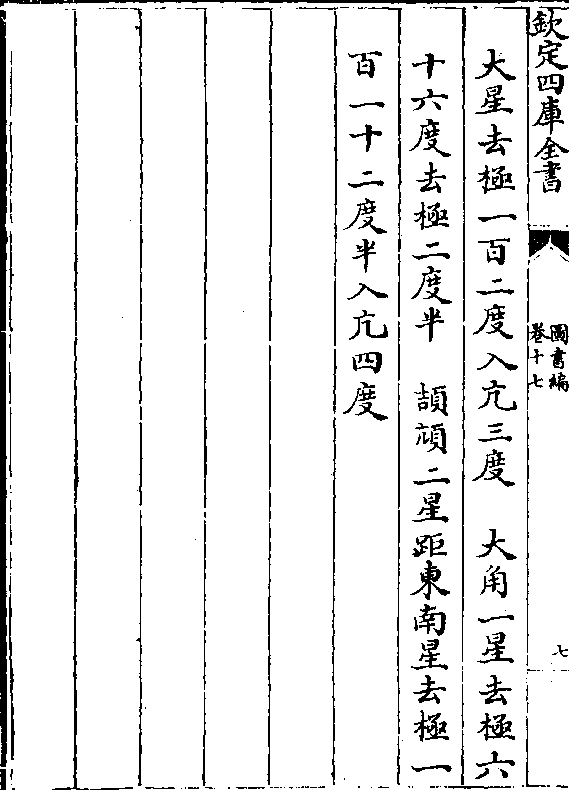 欽定四庫全書
圖書編
卷十七
七
大星去極一百二度入亢三度　大角一星去極六
十六度去極二度半　頡頏二星距東南星去極一
百一十二度半入亢四度